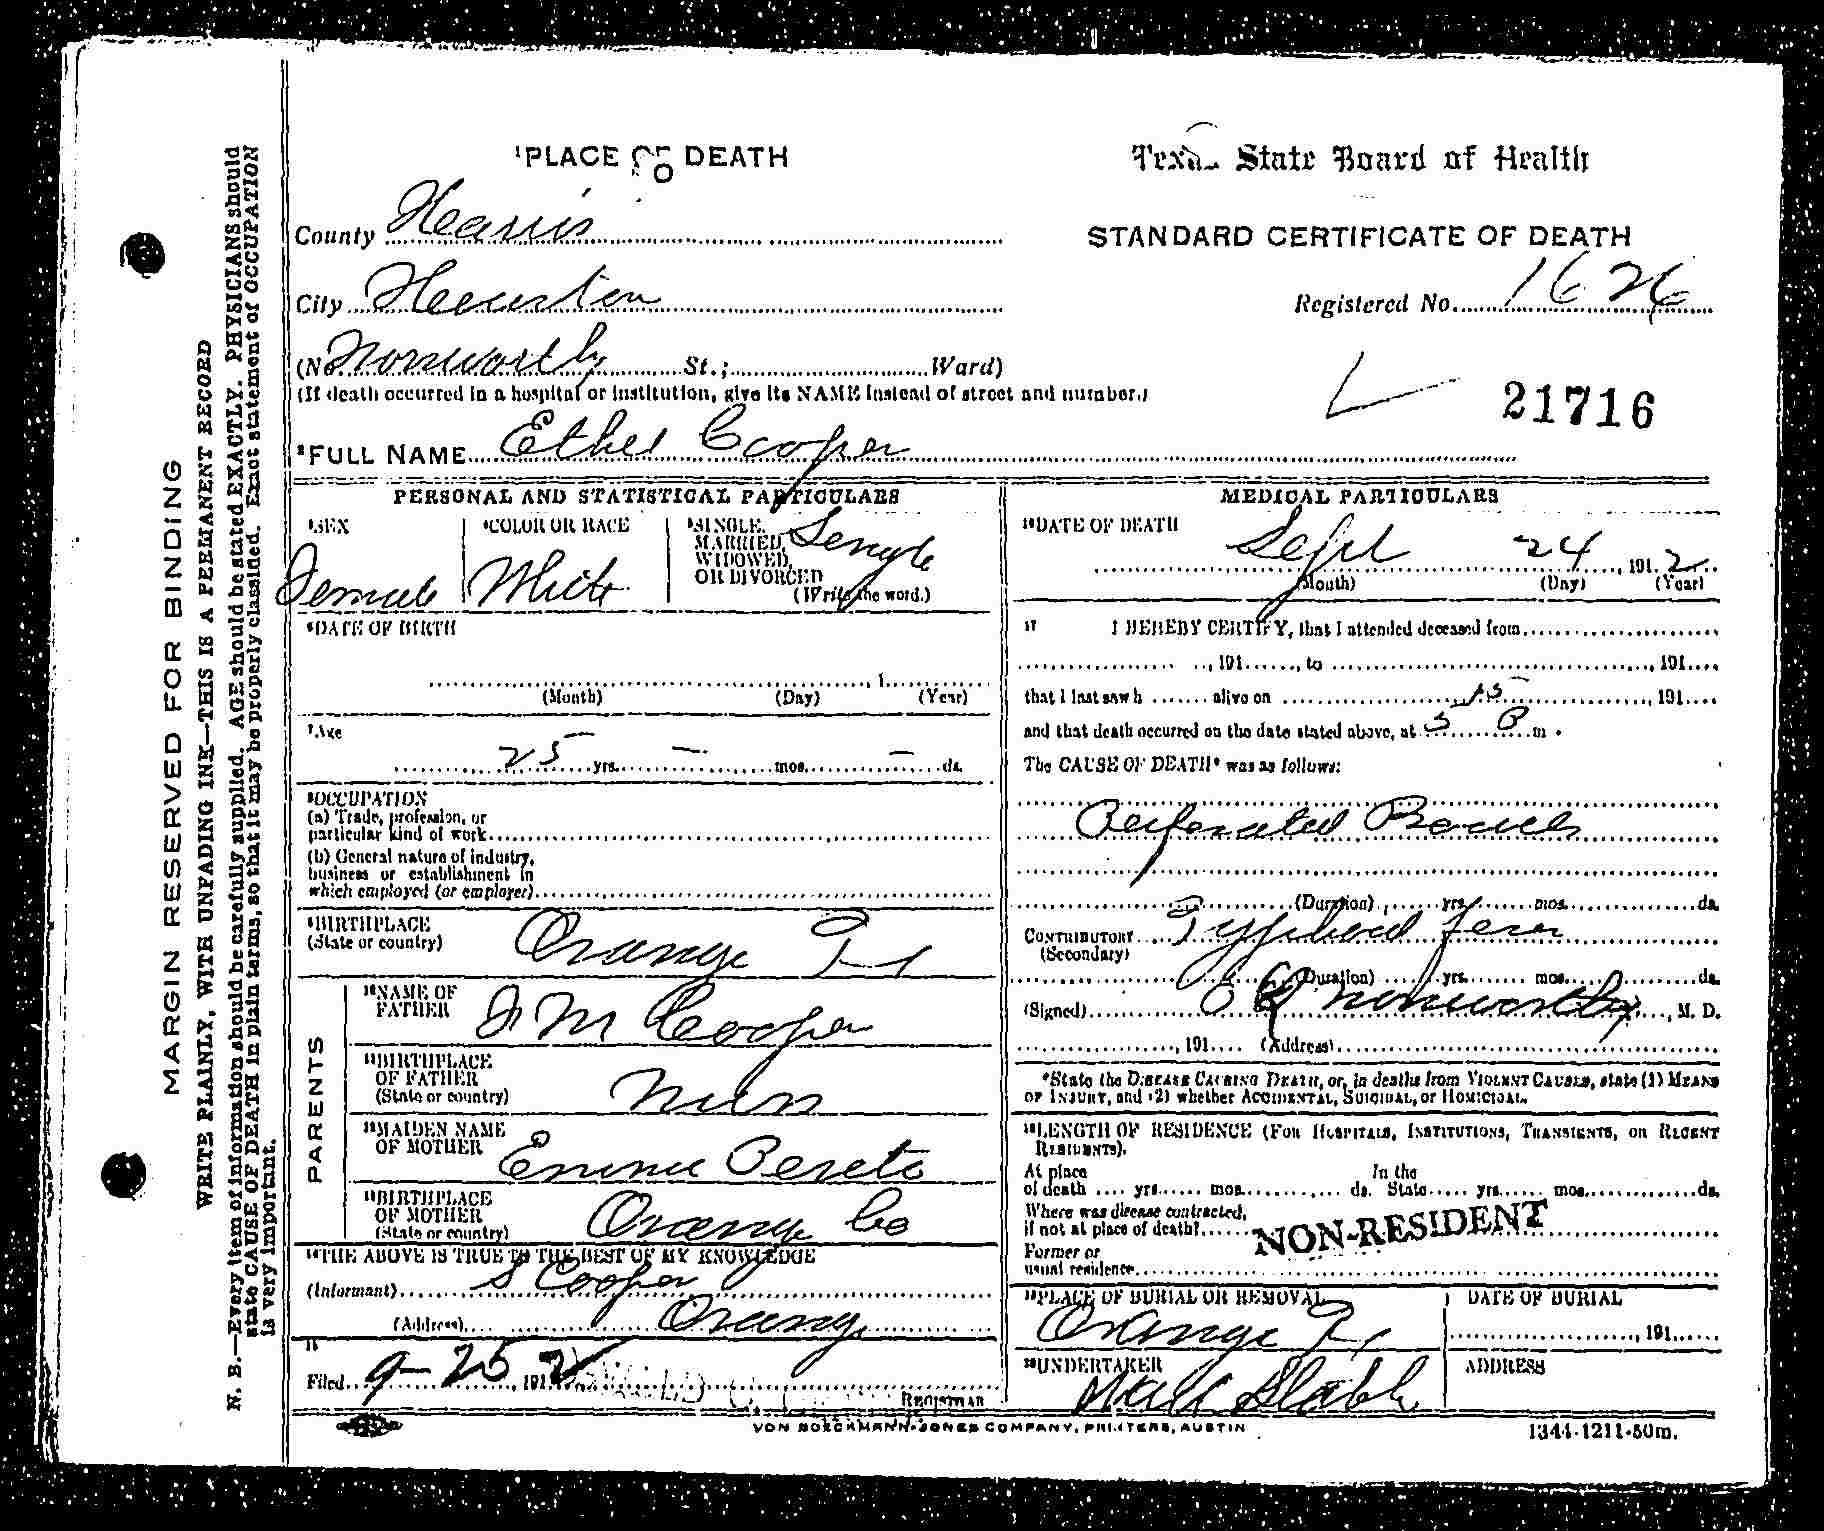 ¹PLACE OF DEATH
Texas State Board of Health
STANDARD CERTIFICATE OF DEATH
County Harris
City Houston
Registered No. 1626
(No Norsworthy St.; Ward)
(If death occurred in a hospital or institution, give its NAME instead of street and number.)
21716
²FULL NAME Ethel Cooper
PERSONAL AND STATISTICAL PARTICULARS
³SEX Female
⁴COLOR OR RACE White
⁵SINGLE, MARRIED, WIDOWED, OR DIVORCED (Write the word.) Single
⁶DATE OF BIRTH
(Month) (Day) , 1 (Year)
⁷Age
25 yrs. – mos. – ds.
⁸OCCUPATION
(a) Trade, profession, or
particular kind of work
(b) General nature of industry,
business or establishment in
which employed (or employer)
⁹BIRTHPLACE
(State or country) Orange Tx
PARENTS
¹⁰NAME OF
FATHER Cooper
¹¹BIRTHPLACE
OF FATHER
(State or country)
¹²MAIDEN NAME
OF MOTHER
¹³BIRTHPLACE
OF MOTHER
(State or country) Orange Co
¹⁴THE ABOVE IS TRUE TO THE BEST OF MY KNOWLEDGE
(Informant) S Cooper
(Address) Orange
Filed 9-25 1912
REGISTRAR
MEDICAL PARTICULARS
¹⁶DATE OF DEATH
Sept 24, 191 2
(Month) (Day) (Year)
¹⁷ I HEREBY CERTIFY, that I attended deceased from
, 191 , to , 191
that I last saw h alive on 15 , 191
and that death occurred on the date stated above, at 5 P m.
The CAUSE OF DEATH* was as follows:
Perforated Bowels
(Duration) yrs. mos. ds.
CONTRIBUTORY Typhoid fever
(Secondary)
(Duration) yrs. mos. ds.
(Signed) Norsworthy, M. D.
, 191 (Address)
*State the DISEASE CAUSING DEATH, or, in deaths from VIOLENT CAUSES, state (1) MEANS
OF INJURY, and (2) whether ACCIDENTAL, SUICIDAL, or HOMICIDAL.
¹⁸LENGTH OF RESIDENCE (FOR HOSPITALS, INSTITUTIONS, TRANSIENTS, OR RECENT
RESIDENTS).
At place In the
of death yrs. mos. ds. State yrs. mos. ds.
Where was disease contracted,
if not at place of death?
NON-RESIDENT
Former or
usual residence
¹⁹PLACE OF BURIAL OR REMOVAL DATE OF BURIAL
Orange Tx , 191
²⁰UNDERTAKER ADDRESS
VON BOECKMANN-JONES COMPANY, PRINTERS, AUSTIN
1344-1211-50m.
MARGIN RESERVED FOR BINDING
WRITE PLAINLY, WITH UNFADING INK—THIS IS A PERMANENT RECORD
N. B.—Every item of information should be carefully supplied. AGE should be stated EXACTLY. PHYSICIANS should
state CAUSE OF DEATH in plain terms, so that it may be properly classified. Exact statement of OCCUPATION
is very important.